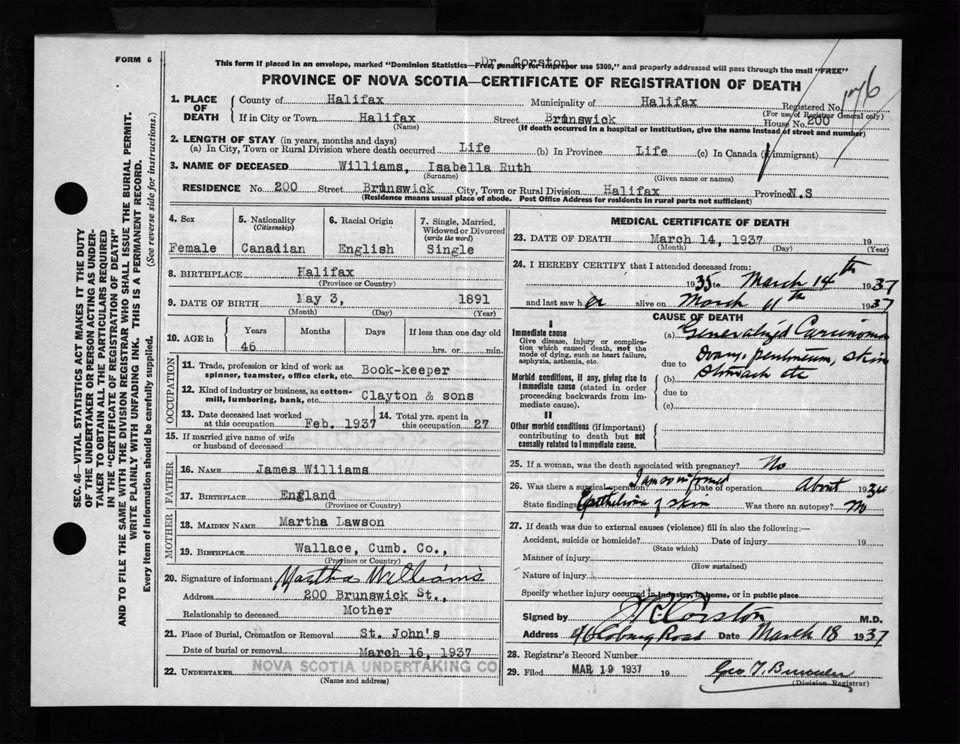 FORM 6
This form if placed in an envelope, marked "Dominion Statistics—Free, penalty for improper use $300," and properly addressed will pass through the mail "FREE"
Dr. Corston
PROVINCE OF NOVA SCOTIA—CERTIFICATE OF REGISTRATION OF DEATH
1. PLACE OF DEATH
County of Halifax Municipality of Halifax Registered No.
(For use of Registrar General only)
If in City or Town Halifax Street Brunswick House No. 200
(Name) (If death occurred in a hospital or institution, give the name instead of street and number)
2. LENGTH OF STAY (in years, months and days)
(a) In City, Town or Rural Division where death occurred Life (b) In Province Life (c) In Canada (if immigrant)
3. NAME OF DECEASED Williams, Isabella Ruth
(Surname) (Given name or names)
RESIDENCE No. 200 Street Brunswick City, Town or Rural Division Halifax Province N.S
(Residence means usual place of abode. Post Office Address for residents in rural parts not sufficient)
4. Sex 5. Nationality (Citizenship) 6. Racial Origin 7. Single, Married, Widowed or Divorced (write the word)
Female Canadian English Single
8. BIRTHPLACE Halifax
(Province or Country)
9. DATE OF BIRTH May 3, 1891
(Month) (Day) (Year)
10. AGE in Years Months Days If less than one day old
46 hrs. or min.
OCCUPATION
11. Trade, profession or kind of work as spinner, teamster, office clerk, etc. Book-keeper
12. Kind of industry or business, as cotton-mill, lumbering, bank, etc. Clayton & sons
13. Date deceased last worked at this occupation Feb. 1937 14. Total yrs. spent in this occupation 27
15. If married give name of wife or husband of deceased
FATHER
16. NAME James Williams
17. BIRTHPLACE England
(Province or Country)
MOTHER
18. MAIDEN NAME Martha Lawson
19. BIRTHPLACE Wallace, Cumb. Co.,
(Province or Country)
20. Signature of informant Martha Williams
Address 200 Brunswick St.,
Relationship to deceased Mother
21. Place of Burial, Cremation or Removal St. John's
Date of burial or removal March 16, 1937
22. UNDERTAKER NOVA SCOTIA UNDERTAKING CO
(Name and address)
MEDICAL CERTIFICATE OF DEATH
23. DATE OF DEATH March 14, 1937 19
(Month) (Day) (Year)
24. I HEREBY CERTIFY that I attended deceased from:
1935 to March 14th 1937
and last saw her alive on March 11th 1937
CAUSE OF DEATH
I
Immediate cause
Give disease, injury or complication which caused death, not the mode of dying, such as heart failure, asphyxia, asthenia, etc.
(a) Generalized Carcinoma
due to Ovary, peritneum, skin
(b) Stomach etc
due to
(c)
Morbid conditions, if any, giving rise to immediate cause (stated in order proceeding backwards from immediate cause).
II
Other morbid conditions (if important) contributing to death but not causally related to immediate cause.
25. If a woman, was the death associated with pregnancy? No
26. Was there a surgical operation? I am so informed Date of operation About 1934
State findings Epithelioma of skin Was there an autopsy? No
27. If death was due to external causes (violence) fill in also the following:—
Accident, suicide or homicide? Date of injury 19
(State which)
Manner of injury
(How sustained)
Nature of injury
Specify whether injury occurred in industry, in home, or in public place
Signed by Corston M.D.
Address Coburg Road Date March 18 1937
28. Registrar's Record Number
29. Filed MAR 19 1937 19 Geo T.
(Division Registrar)
SEC. 46—VITAL STATISTICS ACT MAKES IT THE DUTY
OF THE UNDERTAKER OR PERSON ACTING AS UNDER-
TAKER TO OBTAIN ALL THE PARTICULARS REQUIRED
IN THE "CERTIFICATE OF REGISTRATION OF DEATH"
AND TO FILE THE SAME WITH THE DIVISION REGISTRAR WHO SHALL ISSUE THE BURIAL PERMIT.
WRITE PLAINLY WITH UNFADING INK. THIS IS A PERMANENT RECORD.
Every item of Information should be carefully supplied. (See reverse side for instructions.)